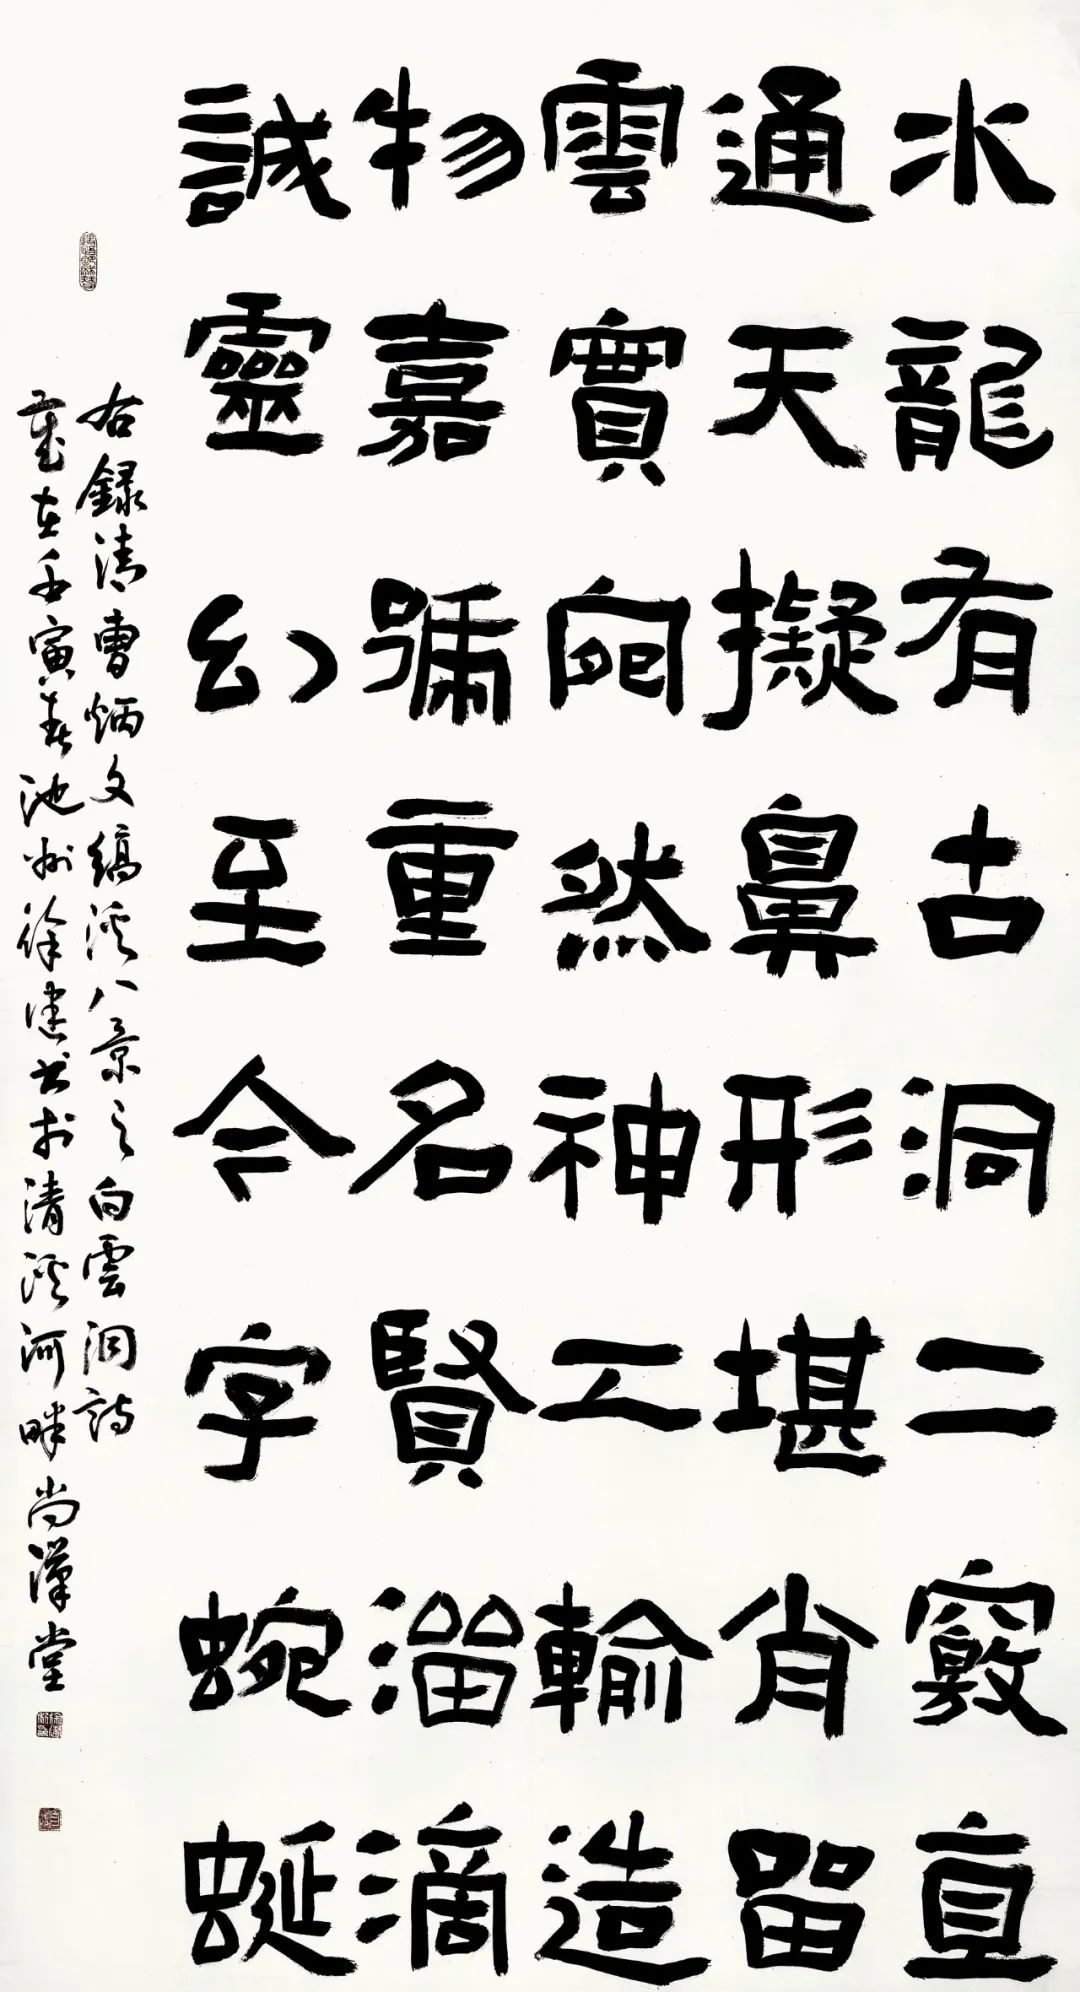 水龍有古洞二竅直
通天擬鼻形堪肖留
雲實宛然神工輸造
物嘉號重名賢溜滴
誠靈幻至今字蜿蜒
右録清曹炳文縞溪八景之白雲洞詩
歲在壬寅春池州徐建书於清溪河畔尚漢堂